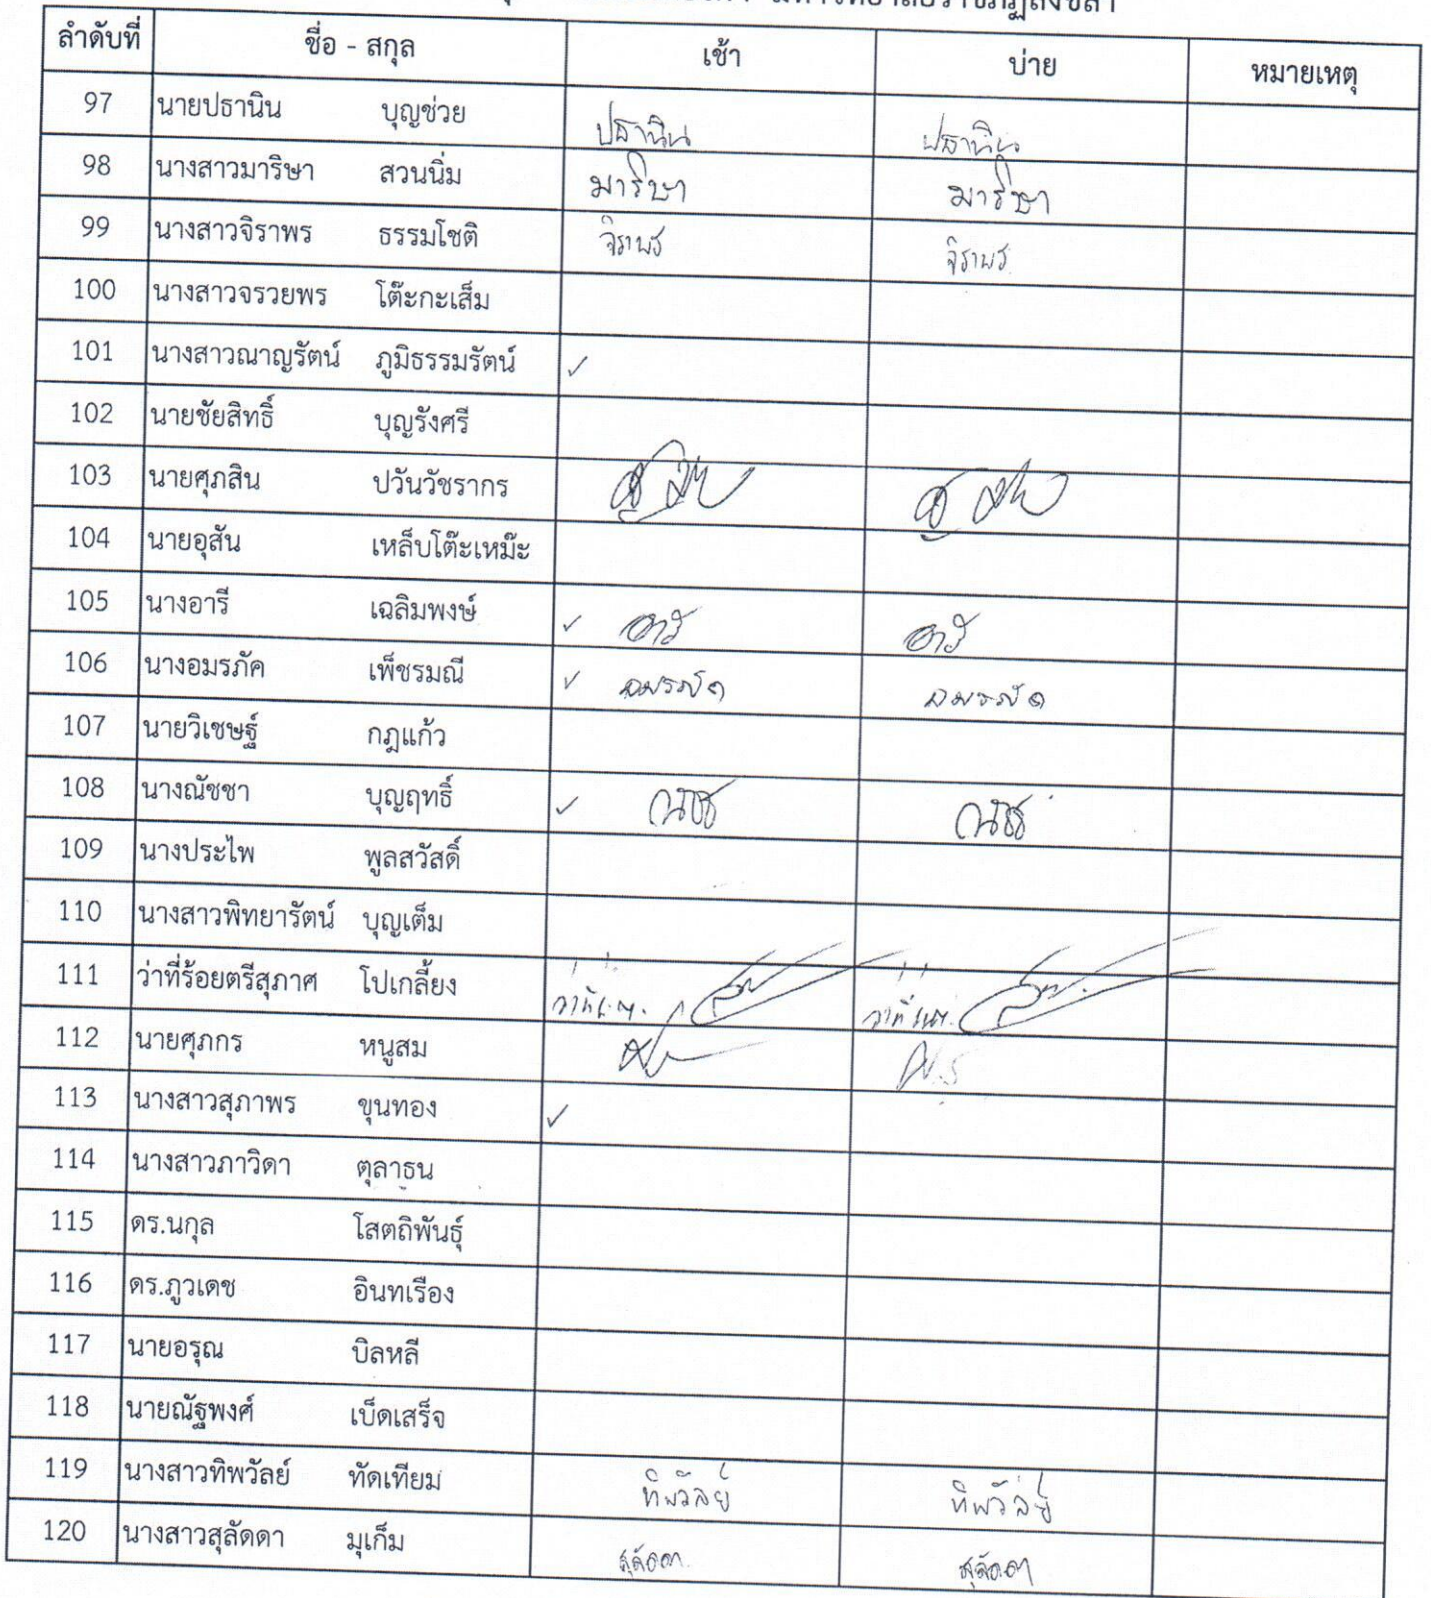 มหาวิทยาลัยราชภัฏสงขลา
ลำดับที่ ชื่อ - สกุล เช้า บ่าย หมายเหตุ
97 นายปธานิน บุญช่วย ปธานิน ปธานิน
98 นางสาวมาริษา สวนนิ่ม มาริษา มาริษา
99 นางสาวจิราพร ธรรมโชติ จิราพร จิราพร
100 นางสาวจรวยพร โต๊ะกะเส็ม
101 นางสาวณาญรัตน์ ภูมิธรรมรัตน์ ✓
102 นายชัยสิทธิ์ บุญรังศรี
103 นายศุภสิน ปวันวัชรากร
104 นายอุสัน เหล็บโต๊ะเหม๊ะ
105 นางอารี เฉลิมพงษ์ ✓ อารี อารี
106 นางอมรภัค เพ็ชรมณี ✓ อมรภัค อมรภัค
107 นายวิเชษฐ์ กฎแก้ว
108 นางณัชชา บุญฤทธิ์ ✓
109 นางประไพ พูลสวัสดิ์
110 นางสาวพิทยารัตน์ บุญเต็ม
111 ว่าที่ร้อยตรีสุภาศ โปเกลี้ยง
112 นายศุภกร หนูสม
113 นางสาวสุภาพร ขุนทอง ✓
114 นางสาวภาวิดา ตุลาธน
115 ดร.นกุล โสตถิพันธุ์
116 ดร.ภูวเดช อินทเรือง
117 นายอรุณ บิลหลี
118 นายณัฐพงศ์ เบ็ดเสร็จ
119 นางสาวทิพวัลย์ ทัดเทียม ทิพวัลย์ ทิพวัลย์
120 นางสาวสุลัดดา มุเก็ม สุลัดดา สุลัดดา